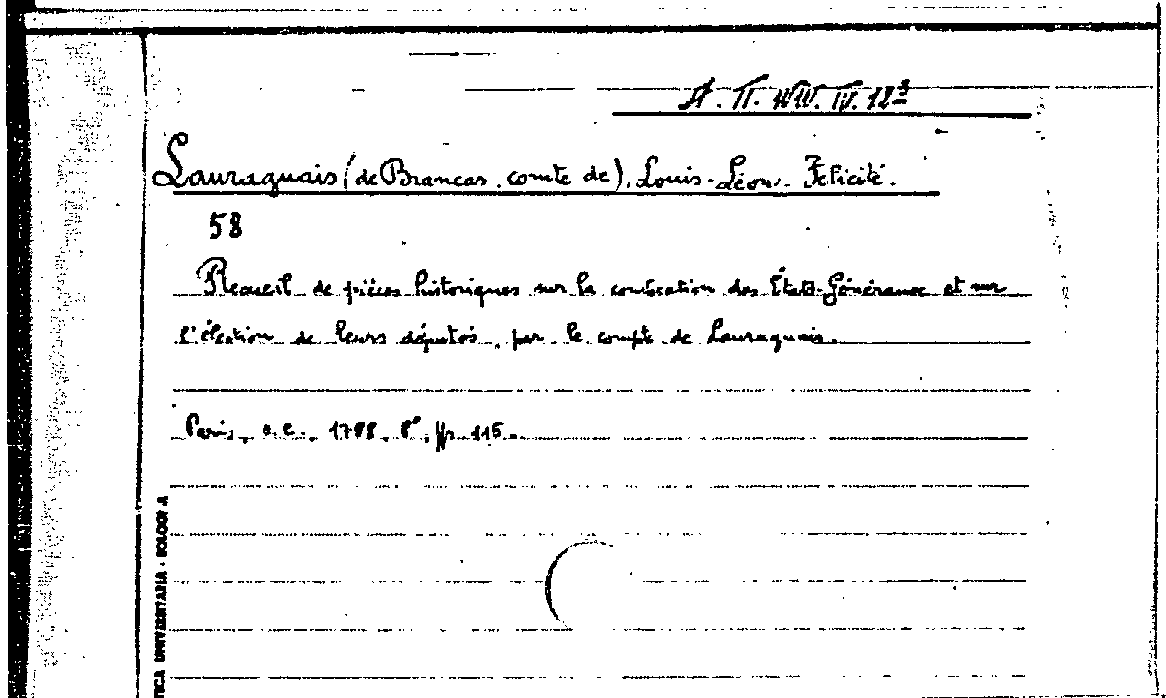 A. II. WW. IV. 12³
Lauraguais (de Brancas, comte de), Louis-Léon-Felicité.
58
Recueil de pièces historiques sur la convocation des États-Généraux et sur
l'élection de leurs députés, par le compte de Lauraguais.
Paris, s.e., 1788, 8°, pp. 115.
TICA UNIVERSITARIA - BOLOGNA